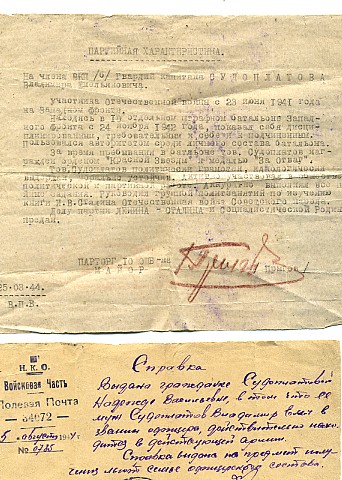 ПАРТИЙНАЯ ХАРАКТЕРИСТИКА.
На члена ВКП /б/ Гвардии капитана СУДОПЛАТОВА
Владимира Емельяновича.
участника Отечественной войны с 23 июня 1941 года
на Западном фронте.
Находясь в 10 отдельном штрафном батальоне Запад-
ного фронта с 24 ноября 1942 года, показал себя дисци-
плинированным, требовательным к себе и подчиненным.
Пользовался авторитетом среди личного состава батальона.
За время пребывания в батальоне тов. Судоплатов наг-
ражден орденом "Красной Звезды" и медалью "За отвагу".
Тов. Судоплатов политически грамотен, идеологически
выдержан, морально устойчив,
политической и партийной
задания. Руководил группой политзанятий по изучению
книги И.В.Сталина Отечественная война Советского народа.
Делу партии ЛЕНИНА - СТАЛИНА и Социалистической Родине
предан.
ПАРТОРГ 10
МАЙОР
25.03.44.
В.П.В.
Н.К.О.
Войсковая Часть
Полевая Почта
— 34072 —
5 август 1944
№ 0735
Справка
Выдана гражданке Судоплатовой
Надежде Васильевне, в том что ее
муж Судоплатов Владимир Емел. в
звании офицера, действительно нахо-
дится в действующей армии.
Справка выдана на предмет полу-
чения льгот семье офицерского состава.